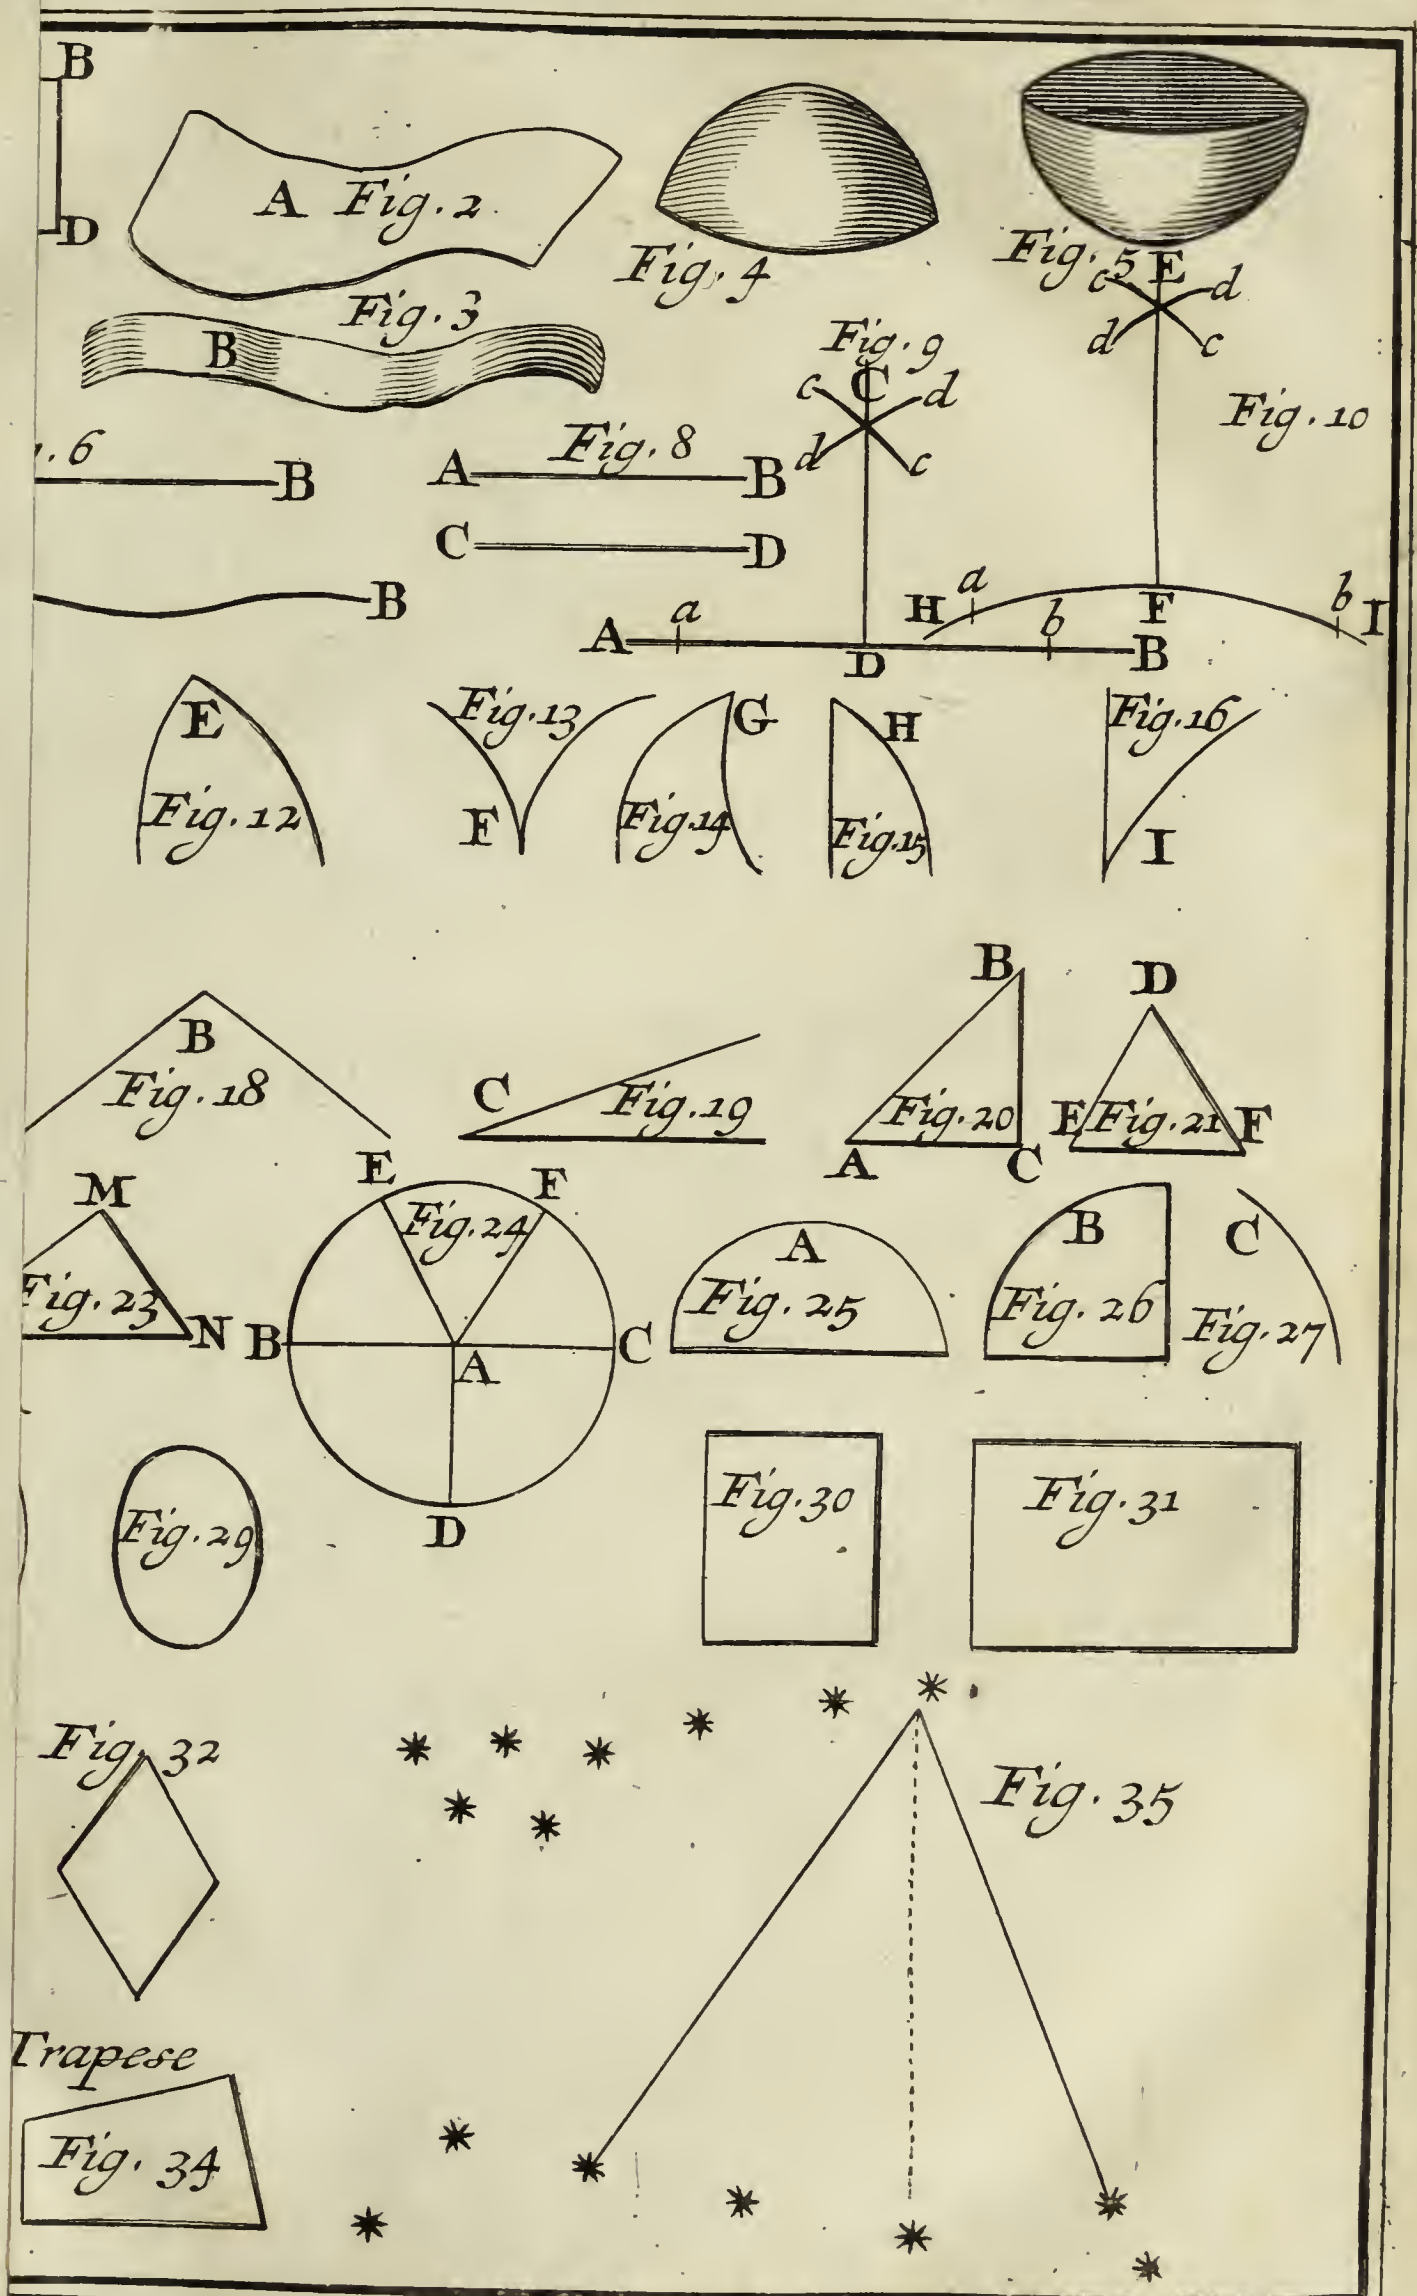 B
D
A Fig. 2.
Fig. 4
Fig. 5
Fig. 3
B
Fig. 9
C
c d
d c
E
c d
d c
Fig. 10
. 6
B
Fig. 8
A B
C D
B
A a D b B
H a F b I
E
Fig. 12
Fig. 13
F
G
Fig. 14
H
Fig. 15
Fig. 16
I
B
Fig. 18
C
Fig. 19
B
Fig. 20
A C
D
E Fig. 21 F
M
Fig. 23
N
E F
Fig. 24
B C
A
D
A
Fig. 25
B
Fig. 26
C
Fig. 27
Fig. 29
Fig. 30
Fig. 31
Fig. 32
Fig. 35
Trapese
Fig. 34